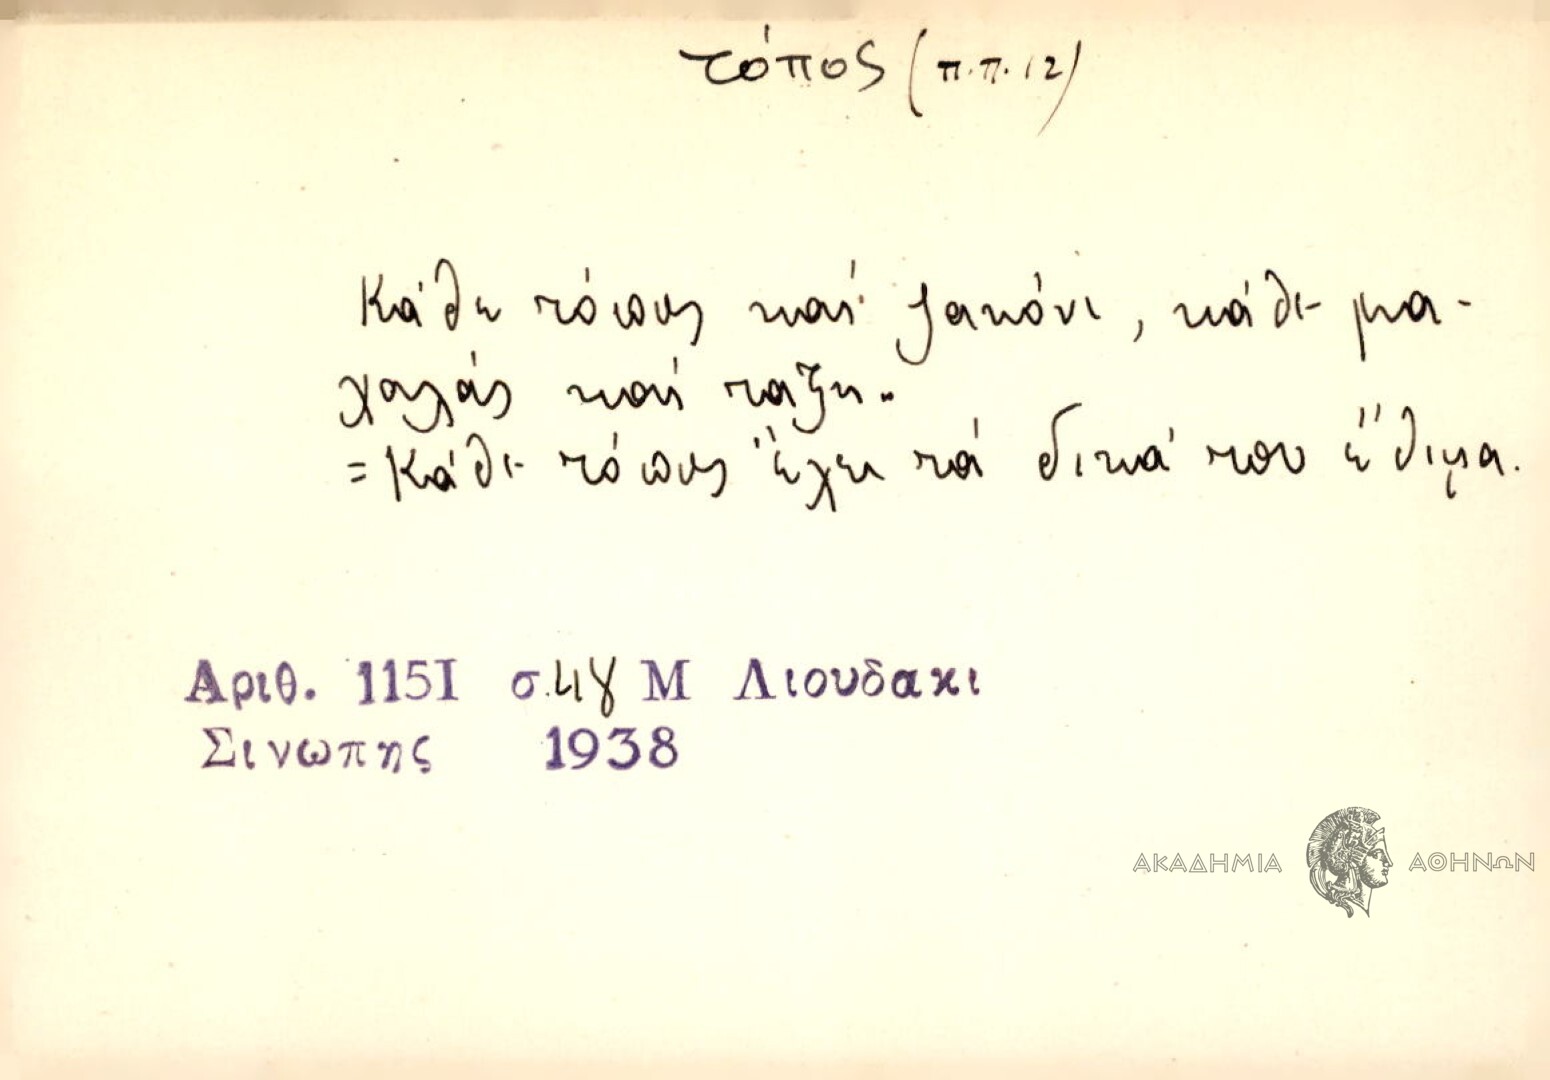 τόπος (π.π.12)
Κάθε τόπος καί ζακόνι, κάθε μα-
χαλάς καί ταξη..
= Κάθε τόπος έχει τά δικά του έθιμα.
Αριθ. 1151 σ.48 Μ Λιουδακι
Σινωπης 1938
ΑΚΑΔΗΜΙΑ ΑΘΗΝΩΝ